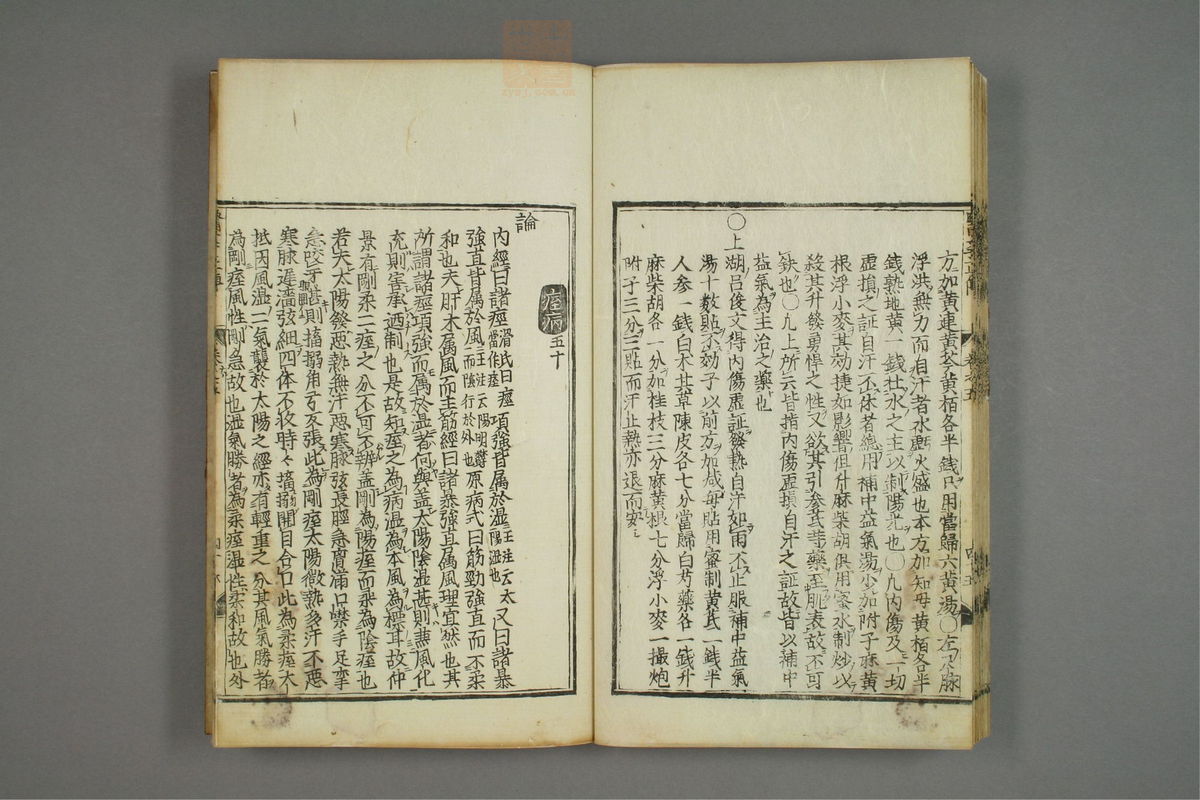 方加黄連黄芩黄栢各半錢只用當歸六黄湯〇左尺脉
浮洪無力而自汗者水虧火盛也本方加知母黄栢各半
錢熟地黄一錢壮水之主以制陽光也〇凡内傷及一切
虚損之証自汗不休者總用補中益氣湯少加附子麻黄
根浮小麥其効捷如影響但升麻柴胡俱用蜜水制炒以
殺其升發勇悍之性又欲其引参芪等藥至肌表故不可
缺也〇凡上所云皆指内傷虚損自汗之証故皆以補中
益氣為主治之藥也
〇上湖吕俊文得内傷虚証發熱自汗如雨不止服補中益氣
湯十數貼不効予以前方加减每貼用蜜制黄芪一錢半
人参一錢白术甘草陳皮各七分當歸白芍藥各一錢升
麻柴胡各一分加桂枝三分麻黄根七分浮小麥一撮炮
附子三分三貼而汗止熱亦退而安
痓病五十
論
内經曰諸痙滑氏曰痙當作痓項強皆属於湿王注云太陽湿也又曰諸暴
強直皆属於風王注云陽明欝而隂行於外也原病式曰筋勁強直而不柔
和也夫肝木属風而主筋經曰諸暴強直属風理宜然也其
所謂諸痙項強而属於湿者何與盖太陽陰湿甚則兼風化
亢則害承廼制也是故知痓之為病湿為本風為標耳故仲
景有剛柔二痓之分不可不辨盖剛為陽痓而柔為陰痓也
若夫太陽發熱無汗惡寒脉弦長勁急胷滿口噤手足攣
急咬牙甚則搐搦角弓反張此為剛痓太陽微熱多汗不惡
寒脉遲濇弦細四体不收時々搐搦開目合口此為柔痓大
抵因風湿二氣襲於太陽之經亦有輕重之分其風氣勝者
為剛痓風性剛急故也湿氣勝者為柔痓湿性柔和故也外